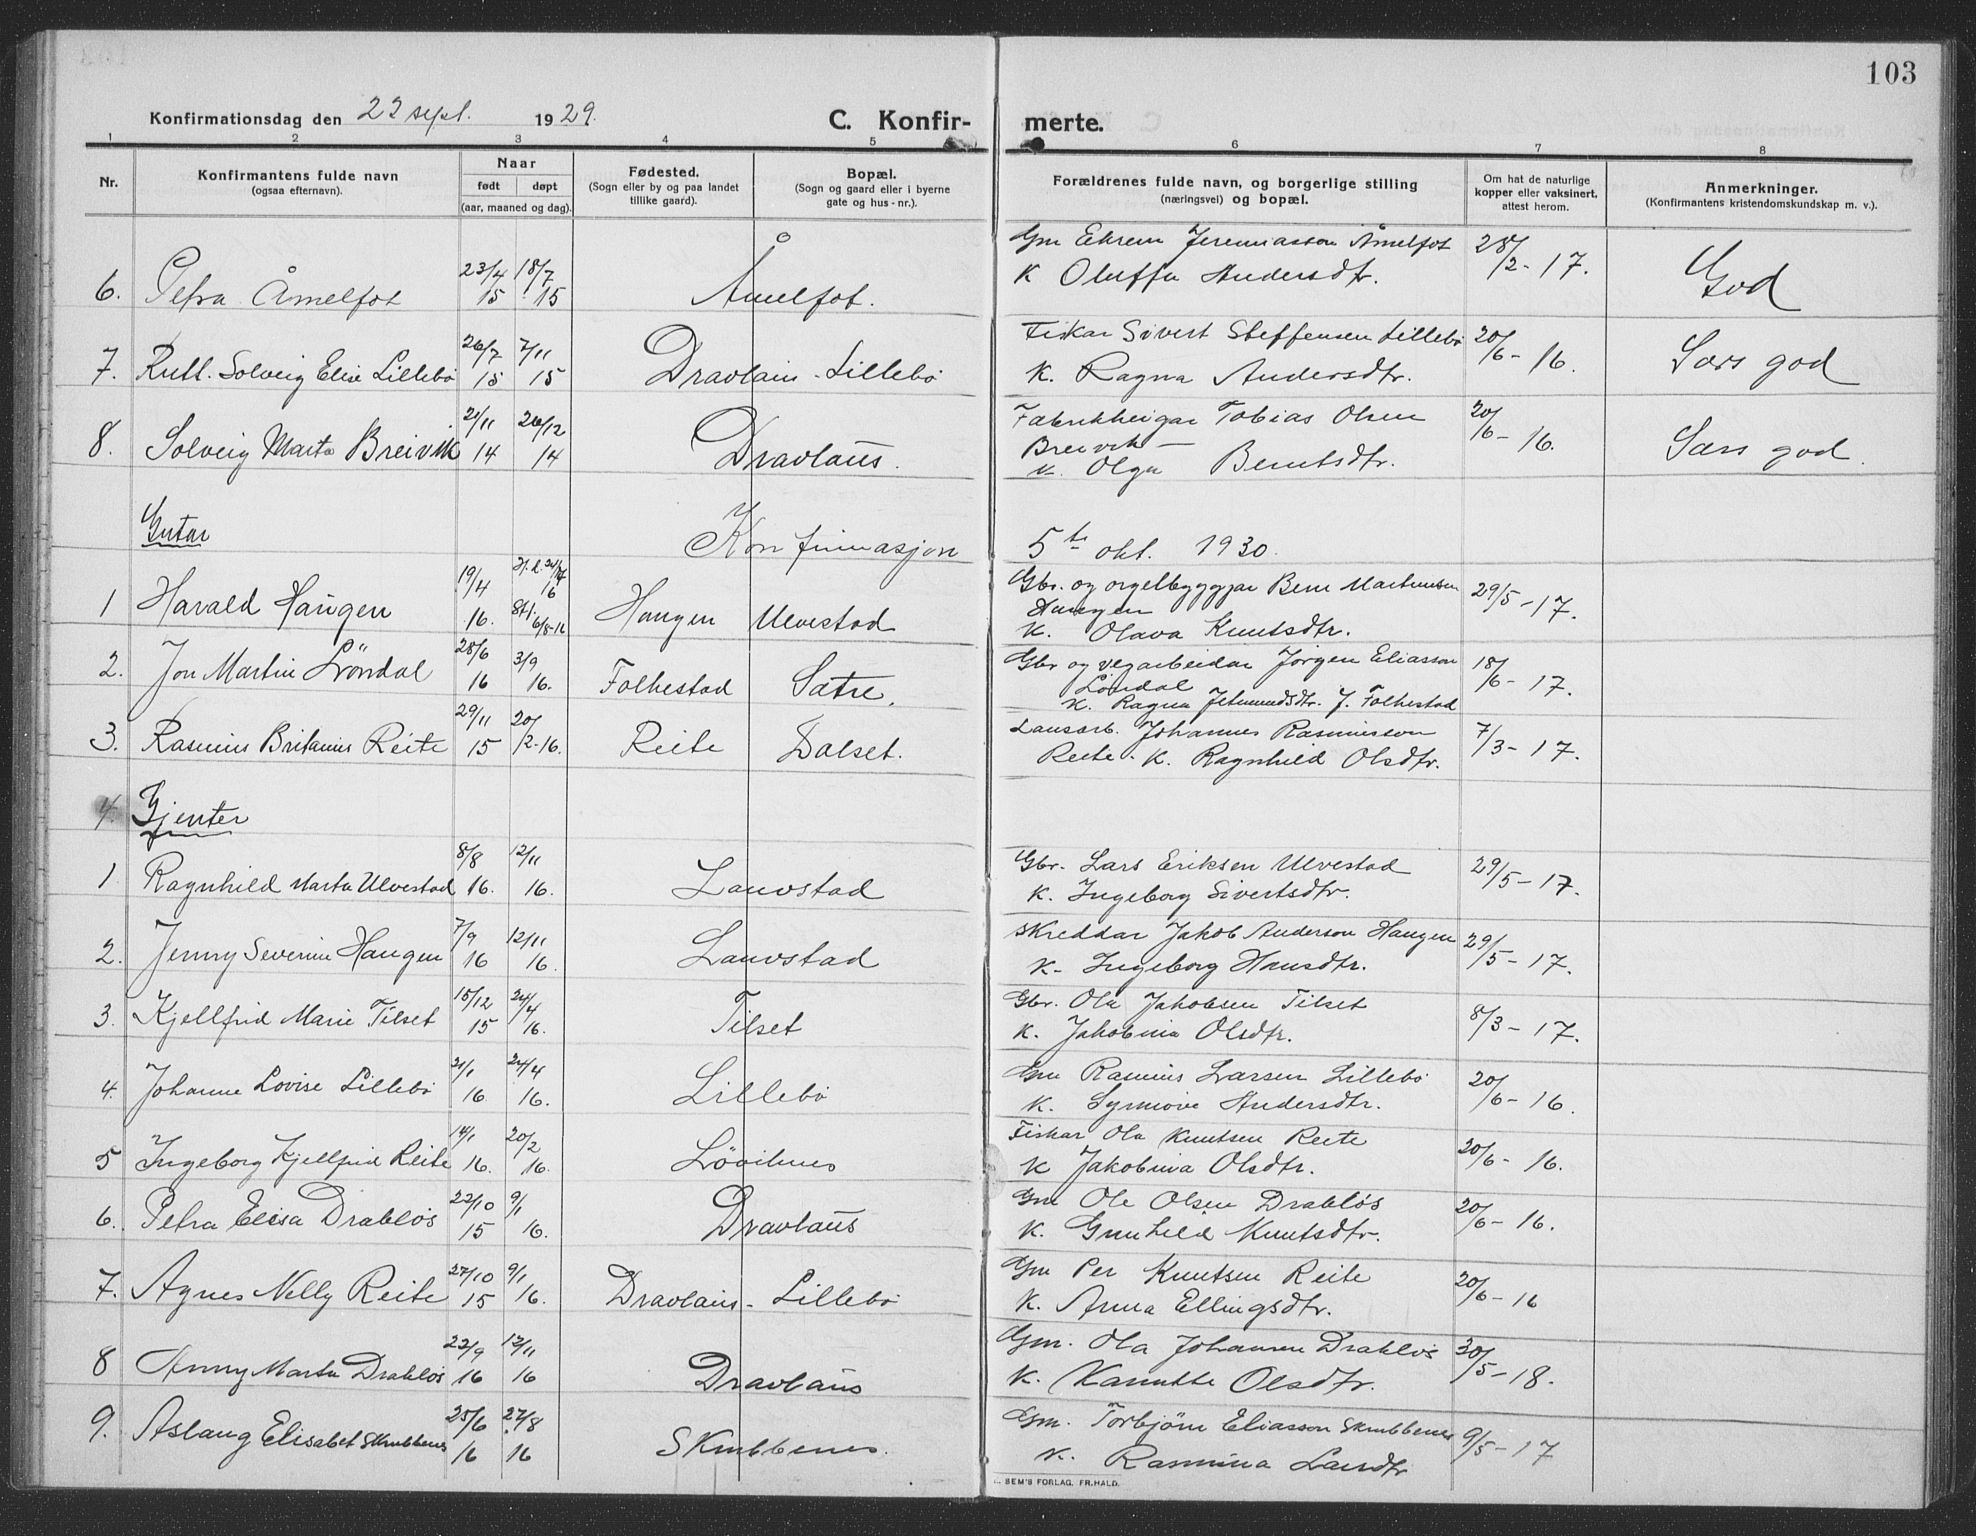 103
Konfirmationsdag den 22 sept. 1929.
C. Konfir-merte.
1 2 3 4 5 6 7 8
Nr.
Konfirmantens fulde navn
(ogsaa efternavn).
Naar
født døpt
(aar, maaned og dag).
Fødested.
(Sogn eller by og paa landet
tillike gaard).
Bopæl.
(Sogn og gaard eller i byerne
gate og hus-nr.).
Forældrenes fulde navn, og borgerlige stilling
(næringsvei) og bopæl.
Om hat de naturlige
kopper eller vaksinert,
attest herom.
Anmerkninger.
(Konfirmantens kristendomskundskap m. v.).
6. Petra Åmelfot 23/4 15 18/7 15 Åmelfot. Gm Ekrem Jeremiasson Åmelfot 28/2-17. God
K Oluffa Andersdtr.
7. Rutt Solveig Elise Lillebö 26/7 15 7/11 15 Dravlaus-Lillebö Fiskar Sivert Steffensen Lillebö 20/6-16. Særs god
K. Ragna Andersdtr.
8. Solveig Marta Breivik 21/11 14 26/12 14 Dravlaus. Fabrikkeigar Tobias Olsen 20/6-16. Særs god.
Breivik
K. Olga Berntsdtr.
Gutar Konfirmasjon 5te okt. 1930.
1 Harald Haugen 19/4 16. 6/8-16 Haugen Ulvestad Gbr. og orgelbyggjar Bern Martinusen 29/5-17.
Haugen
K. Olava Knutsdtr.
2. Jon Martin Löndal 28/6 16 3/9 16. Folkestad Sætre. Gbr og vegarbeidar Jørgen Eliasson 18/6-17.
Löndal
K. Ragna Jetmundsdtr. f. Folkestad
3. Rasmus Britanus Reite 29/11 15 20/2-16. Reite Dalset. Lausarb. Johannes Rasmusson 7/3-17.
Reite. K. Ragnhild Olsdtr.
4. Gjenter
1 Ragnhild Marta Ulvestad 8/8 16. 12/11 16. Lauvstad Gbr. Lars Eriksen Ulvestad 29/5-17.
K. Ingeborg Sivertsdtr.
2. Jenny Severine Haugen 7/9 16 12/11 16. Lauvstad Skreddar Jakob Anderson Haugen 29/5-17.
K. Ingeborg Hansdtr.
3. Kjellfrid Marie Tilset 15/12 15 24/4 16. Tilset Gbr. Ola Jakobsen Tilset 8/3-17.
K. Jakobina Olsdtr.
4. Johanne Lovise Lillebö 21/1 16. 24/4 16. Lillebö Gm Rasmus Larsen Lillebö 20/6-16.
K. Synnöve Andersdtr.
5 Ingeborg Kjellfrid Reite 14/1 16. 20/2 16. Löviknes Fiskar Ola Knutsen Reite 20/6-16.
K Jakobina Olsdtr.
6. Petra Elisa Drabløs 22/10 15 9/1 16. Dravlaus Gm Ole Olsen Drabløs 20/6-16.
K. Gunhild Knutsdtr.
7. Agnes Nelly Reite 27/10 15 9/1 16. Dravlaus-Lillebö Gm Per Knutsen Reite 20/6-16
K. Anna Ellingsdtr.
8 Anny Marta Drabløs 23/9 16 12/11 16 Dravlaus Gm. Ola Johansen Drabløs 30/5-18.
K. Kanutte Olsdtr.
9. Aslaug Elisabet Skrubbenes 25/6 16 27/8 16 Skrubbenes. Gm. Torbjörn Eliasson Skrubbenes 9/5-17
K. Rasmina Larsdtr
SEM'S FORLAG. FR.HALD.